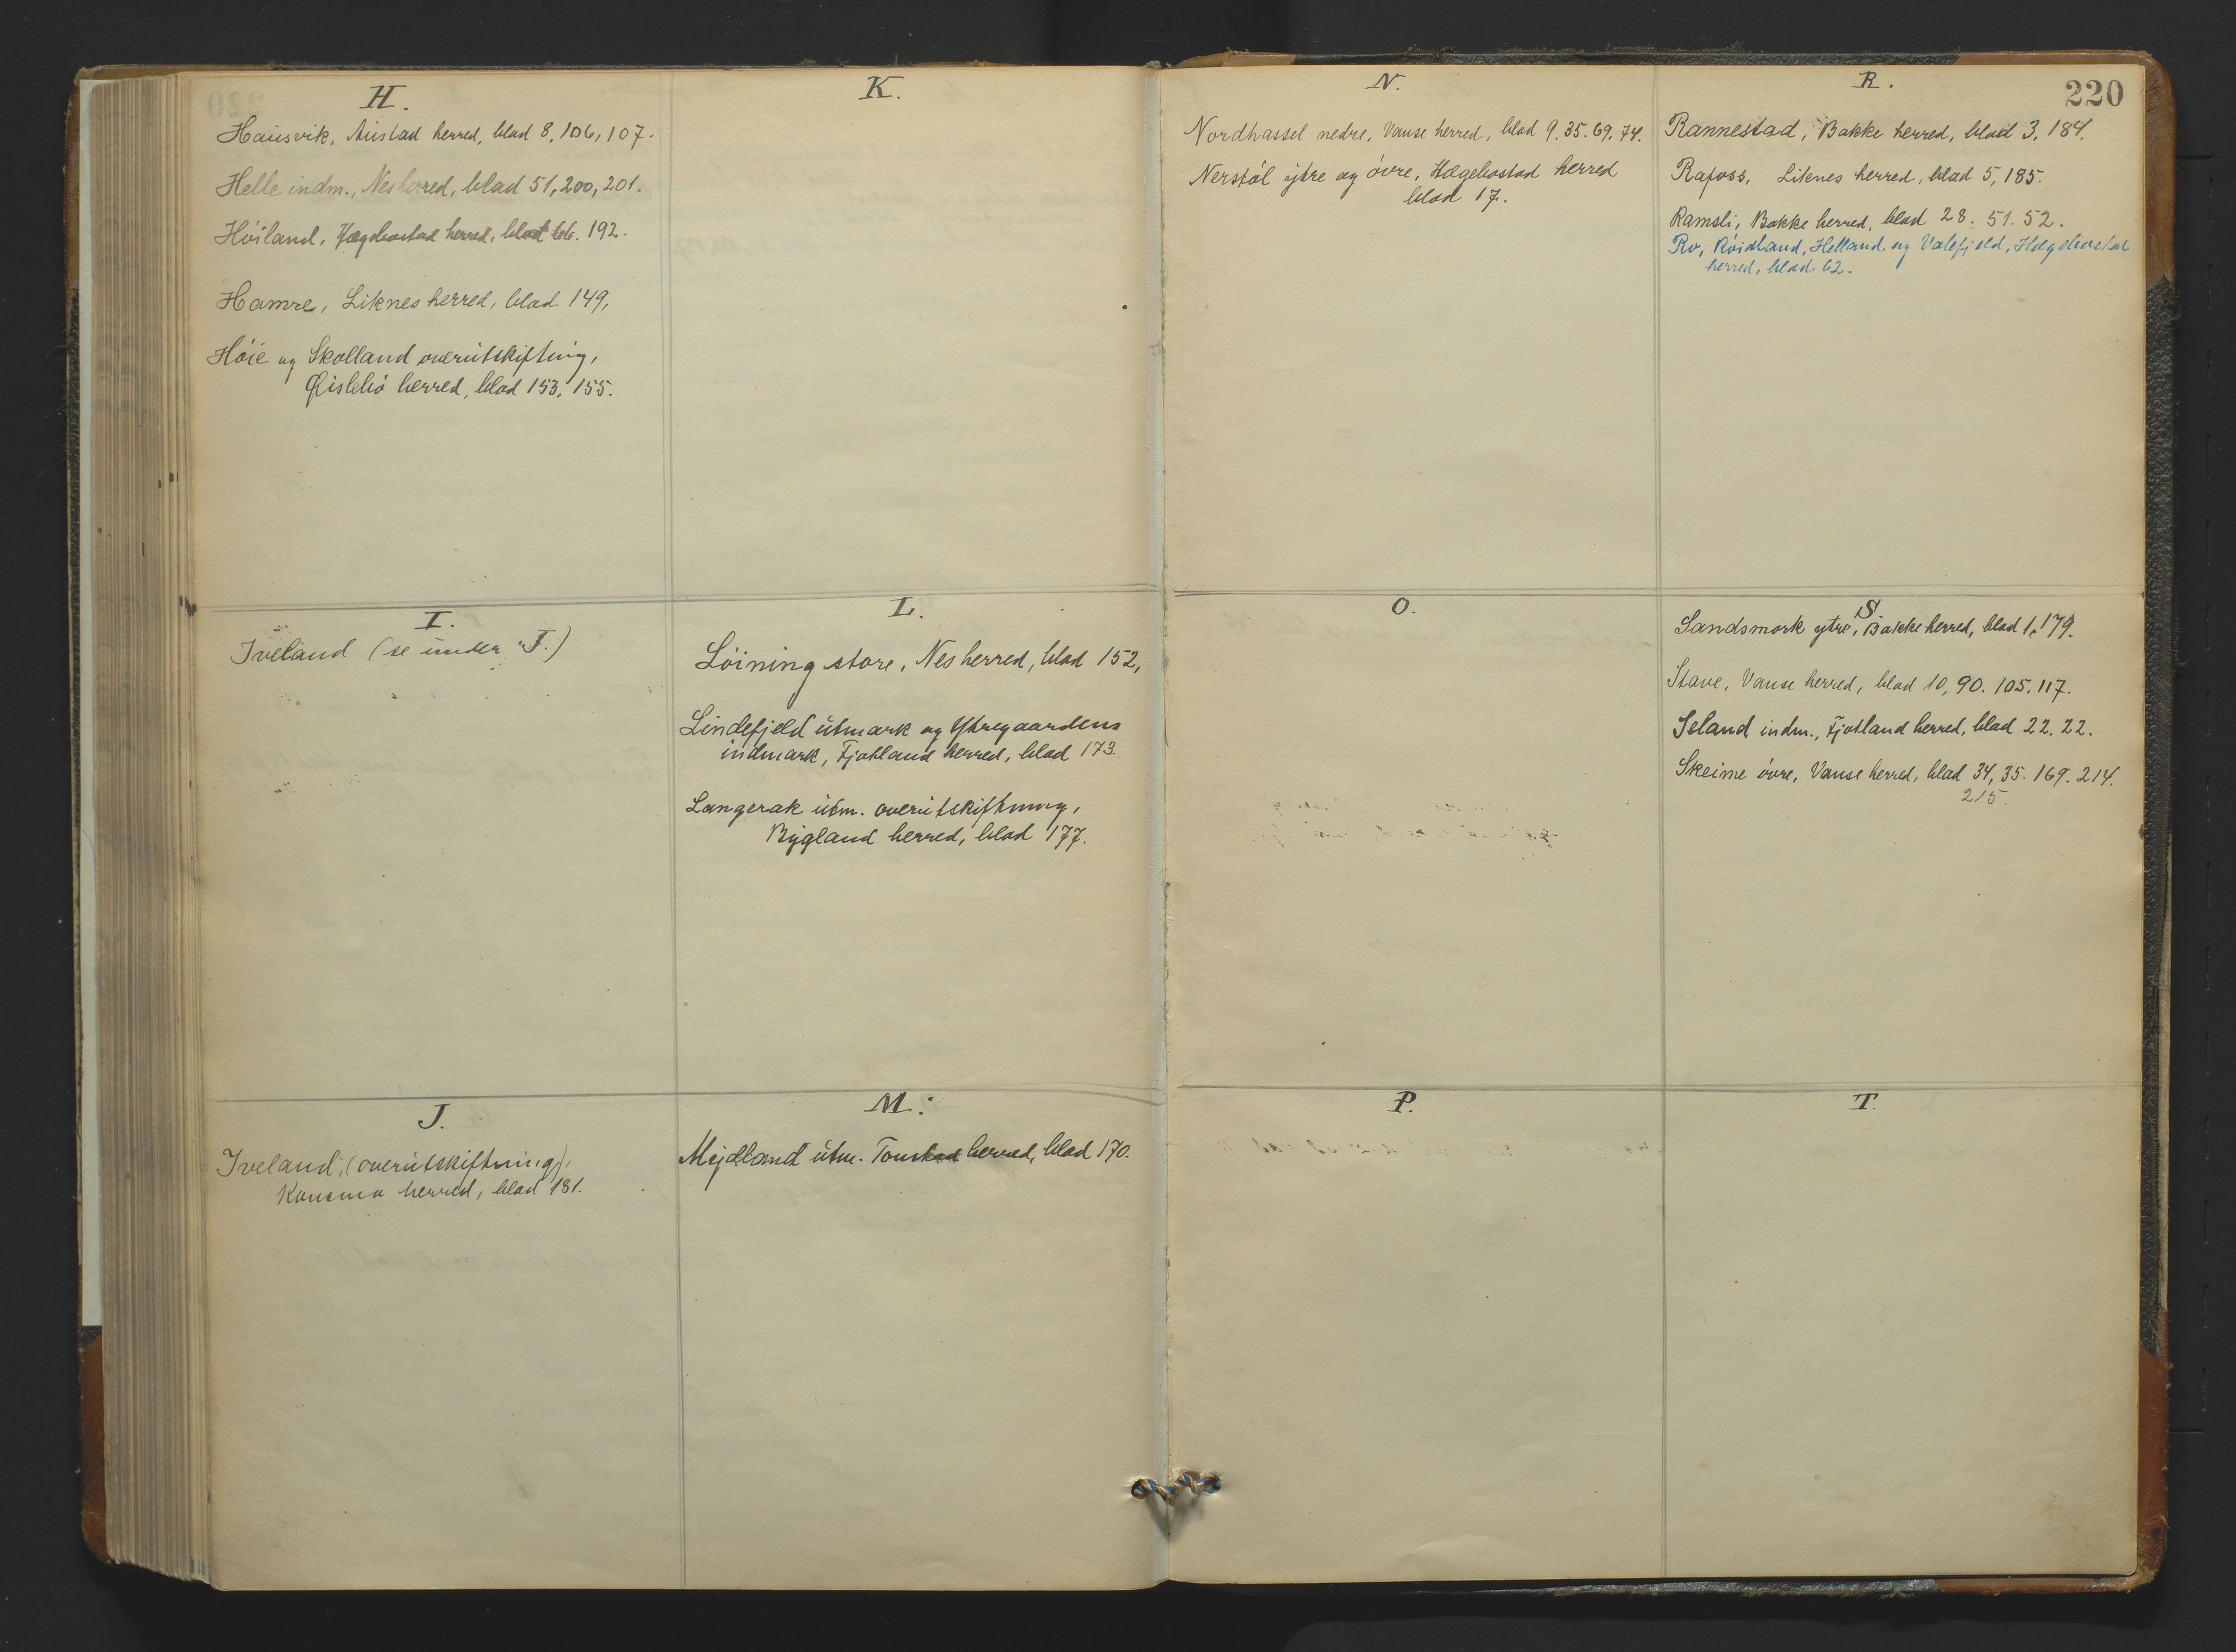 H.
Hausvik, Austad herred, blad 8, 106, 107.
Helle indm., Nes herred, blad 51, 200, 201.
Höiland, Hægebostad herred, blad 66. 192.
Hamre, Liknes herred, blad 149,
Höie og Skolland overutskiftning,
Øislebö herred, blad 153, 155.
I.
Iveland (se under "J.)
J.
Iveland, (overutskiftning),
Konsmo herred, blad 181.
K.
L.
Löining store, Nes herred, blad 152,
Lindefjeld utmark og Ytregaardens
indmark, Fjotland herred, blad 173.
Langerak utm. overutskiftning,
Bygland herred, blad 177.
M.
Mejdland utm. Tonstad herred, blad 170.
N.
Nordhassel nedre, Vanse herred, blad 9. 35. 69. 74.
Nerstöl ytre og övre, Hægebostad herred
blad 17.
O.
P.
R.
220
Rannestad, Bakke herred, blad 3, 184.
Rafoss, Liknes herred, blad 5, 185.
Ramsli, Bakke herred, blad 28. 51. 52.
Ro, Röidland, Helland og Valefjeld, Hægebostad
herred, blad 62.
S.
Sandsmork ytre, Bakke herred, blad 1, 179.
Stave, Vanse herred, blad 10, 90. 105. 117.
Seland indm., Fjotland herred, blad 22. 22.
Skeime övre, Vanse herred, blad 34, 35. 169. 214.
215.
T.